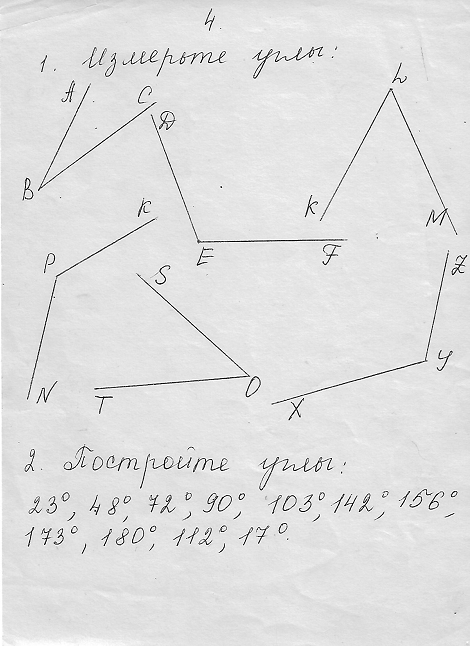 4.
1. Измерьте углы:
A
C
D
B
L
K
M
K
P
E
F
S
Z
N
T
O
X
Y
2. Постройте углы:
23°, 48°, 72°, 90°, 103°, 142°, 156°,
173°, 180°, 112°, 17°.